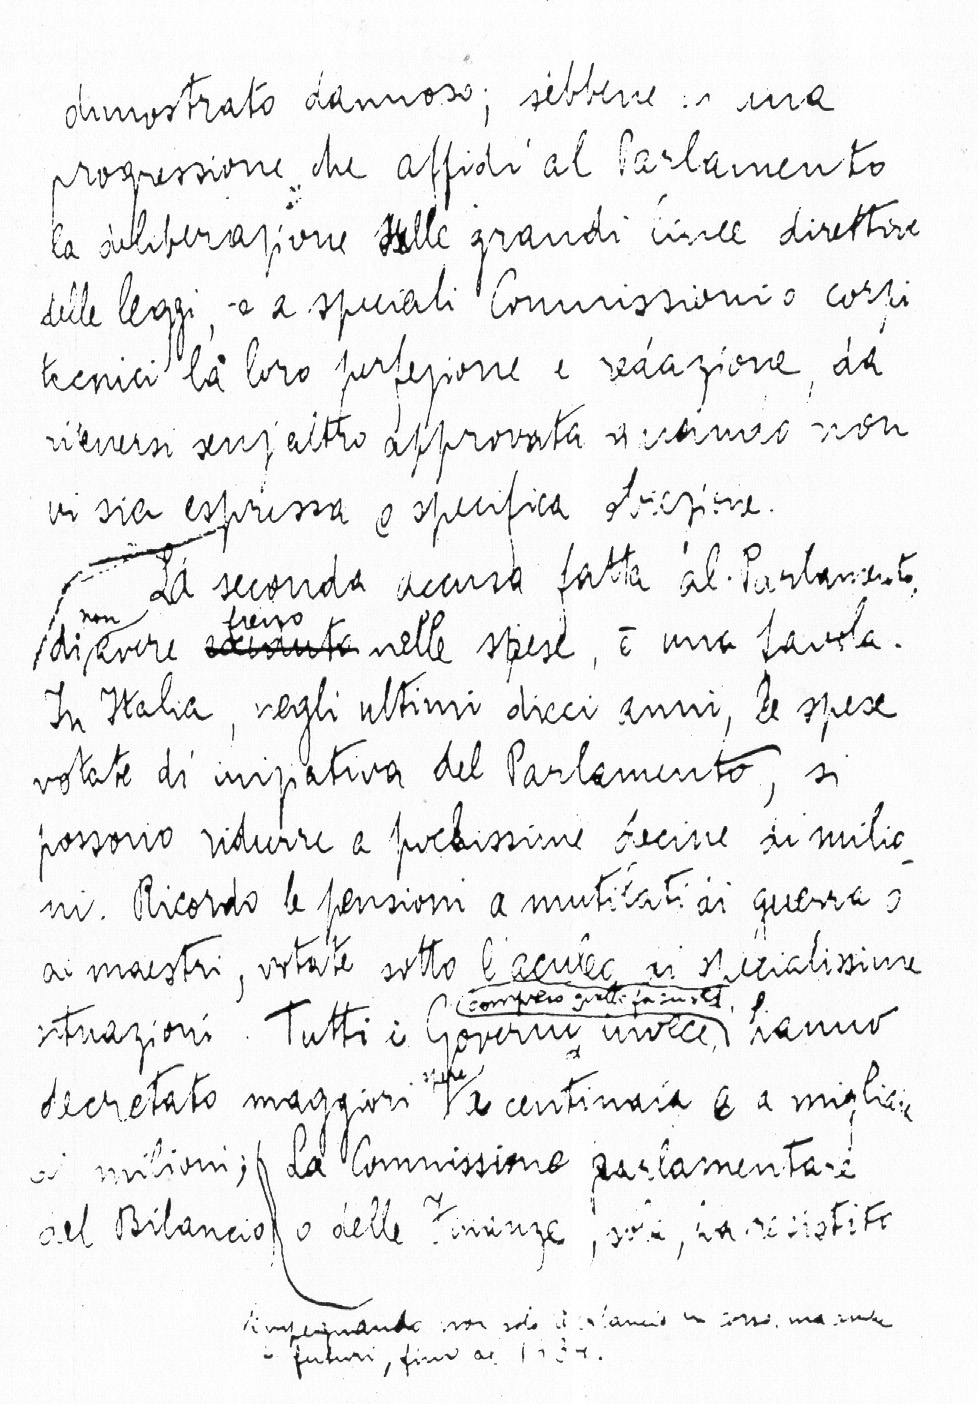 dimostrato dannoso; sebbene una
progressione che affidi al Parlamento
la deliberazione delle grandi linee direttive
delle leggi, e a speciali Commissioni o corpi
tecnici la loro perfezione e redazione, da
ritenersi senz'altro approvata quando non
vi sia espressa e specifica obiezione.
La seconda accusa fatta al Parlamento,
non freno
di avere nelle spese, è una favola.
In Italia, negli ultimi dieci anni, le spese
votate di iniziativa del Parlamento, si
possono ridurre a pochissime decine di milio
ni. Ricordo le pensioni a mutilati di guerra o
ai maestri, votate sotto l'aculeo di specialissime
situazioni. Tutti i Governi, invece, hanno
compreso quello fascista,
spese
decretato maggiori a centinaia e a migliaia
di milioni; La Commissione parlamentare
del Bilancio o delle Finanze, sola, ha resistito
impegnando non solo il bilancio in corso, ma anche
i futuri, fino al